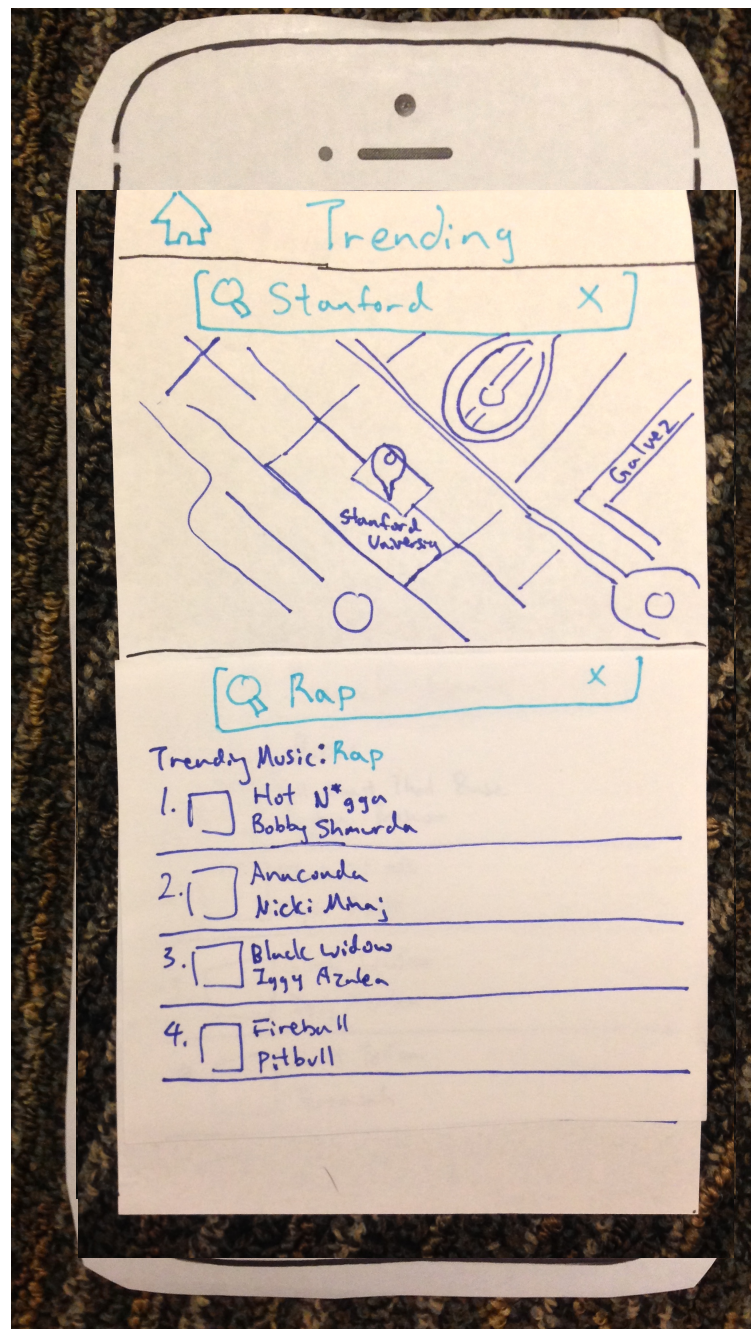 Trending
Stanford X
Galvez
Stanford
University
Rap X
Trending Music: Rap
1. Hot N*gga
Bobby Shmurda
2. Anaconda
Nicki Minaj
3. Black widow
Iggy Azalea
4. Fireball
Pitbull